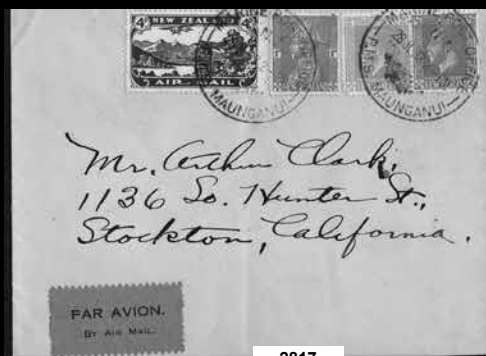 4d NEW ZEALAND 4d
AIR MAIL
MARINE POST OFFICE
R.M.S. MAUNGANUI
Mr. Arthur Clark,
1136 So. Hunter St.,
Stockton, California.
PAR AVION.
BY AIR MAIL.
2817